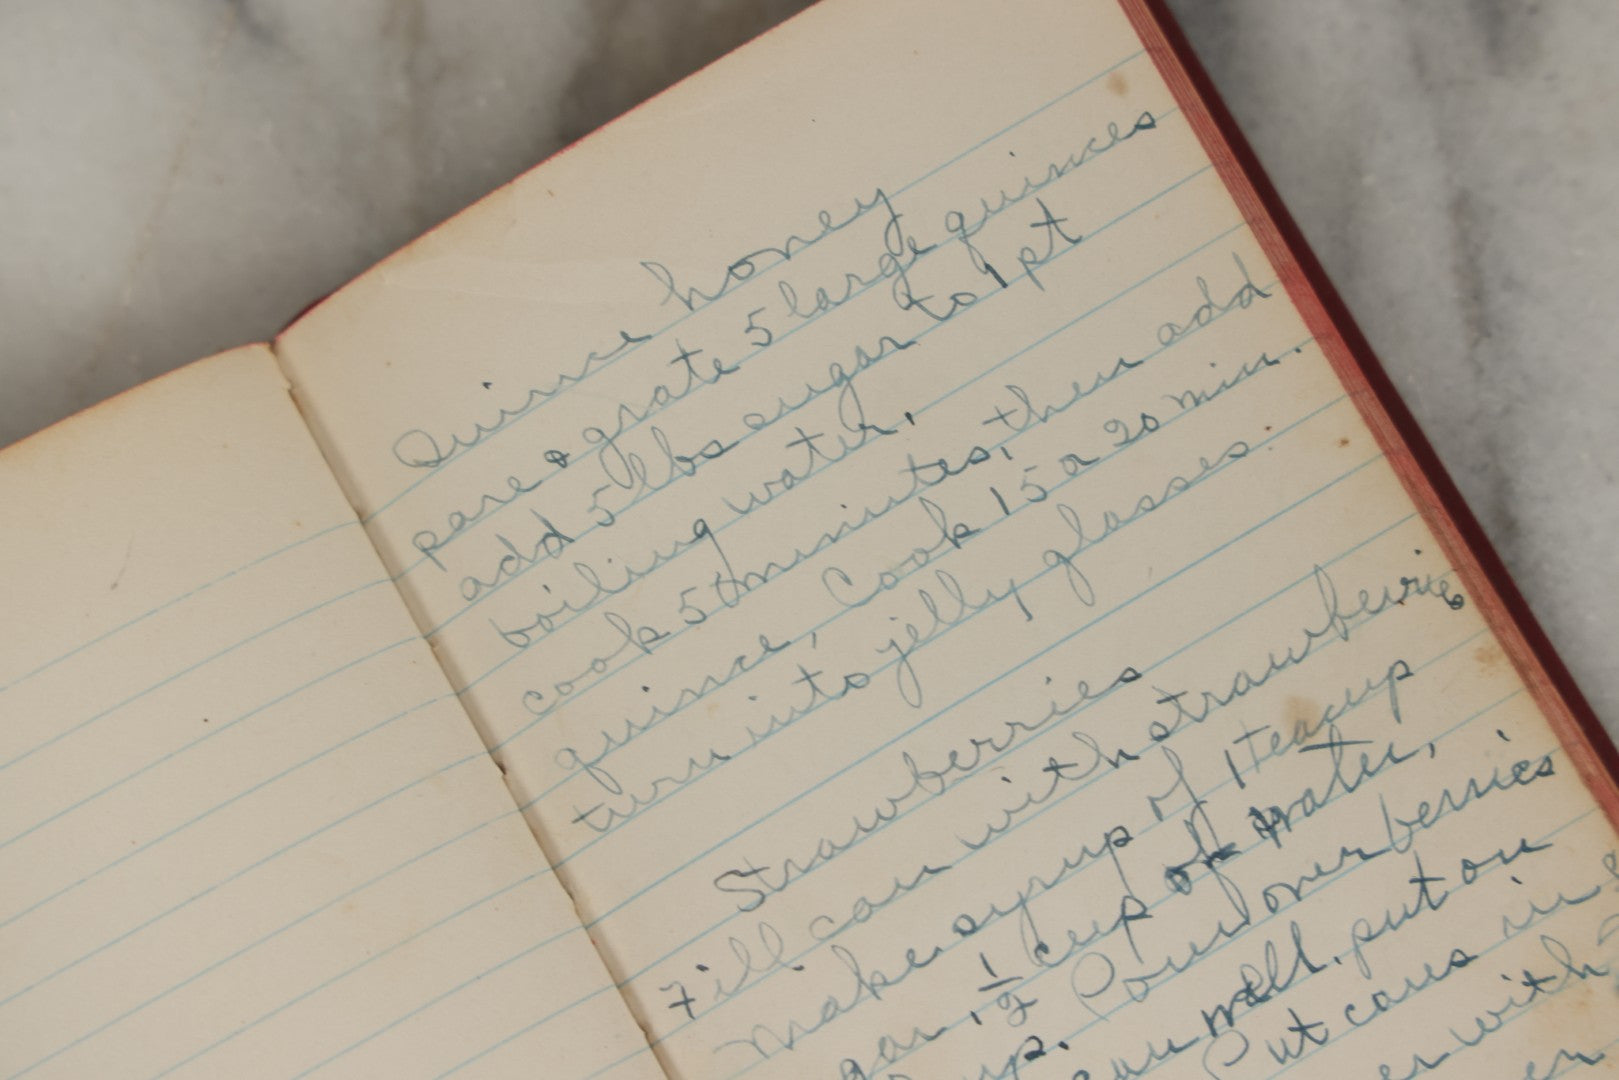 Quince honey
pare & grate 5 large quinces
add 5 lbs sugar to 1 pt
boiling water.
cook 5 minutes, then add
quince, Cook 15 or 20 min.
turn into jelly glasses.
Strawberries
Fill can with strawberries
Make syrup of 1 teacup
gar, 1/2 cup of water,
up. Pour over berries
can full. put on
Put cans in
er with
en